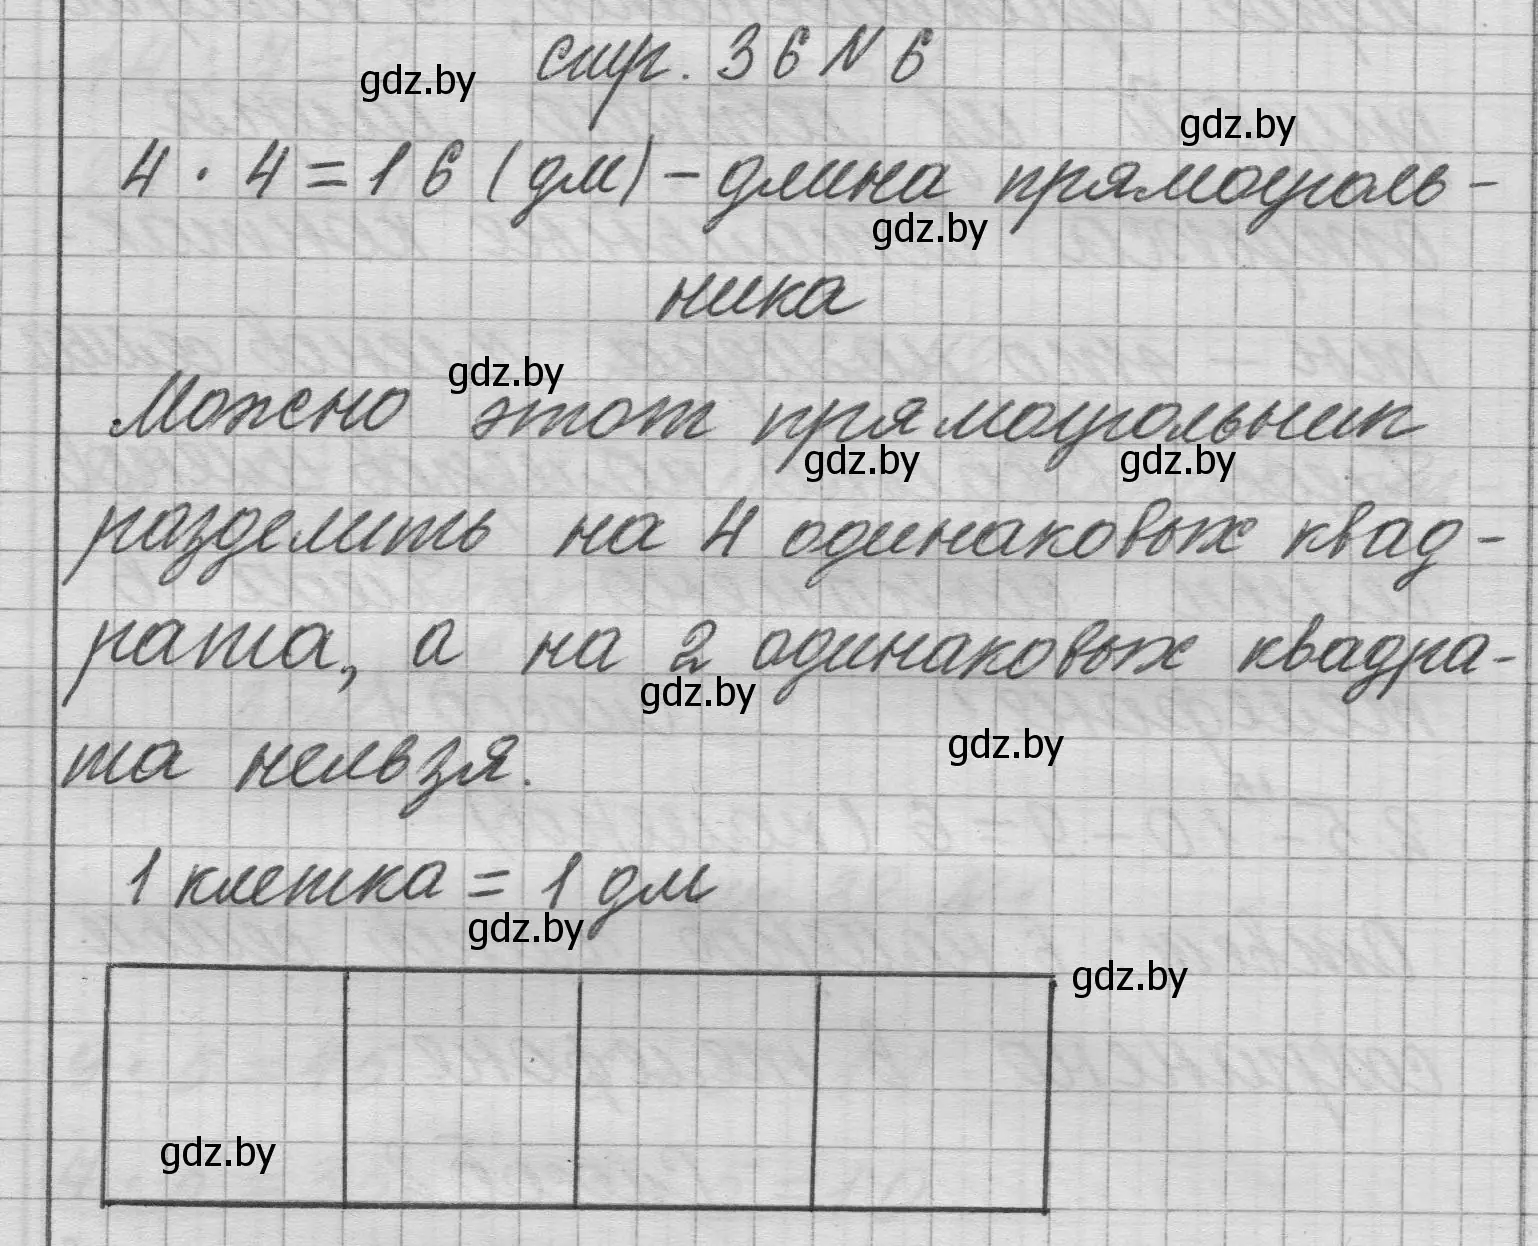 стр. 36 N 6
gdz.by
gdz.by
4 · 4 = 16 (дм) - длина прямоуголь-
gdz.by
ника
gdz.by
Можно этот прямоугольник
gdz.by gdz.by
разделить на 4 одинаковых квад-
рата, а на 2 одинаковых квадра-
gdz.by
та нельзя.
gdz.by
1 клетка = 1 дм
gdz.by
gdz.by
gdz.by